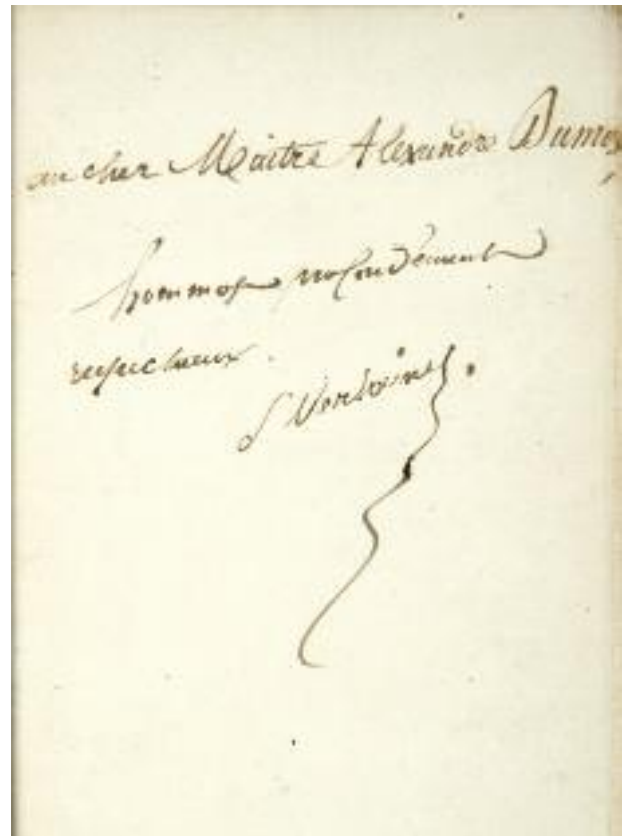 au cher Maître Alexandre Dumas,
hommage profondément
respectueux.
P. Verlaine.